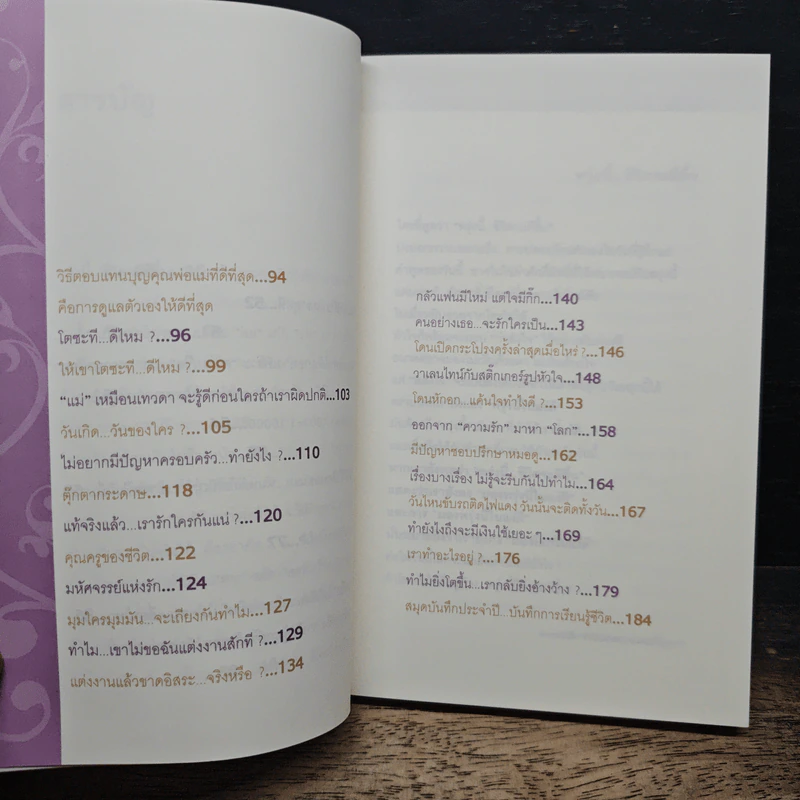 วิธีตอบแทนบุญคุณพ่อแม่ที่ดีที่สุด...94
คือการดูแลตัวเองให้ดีที่สุด
โตซะที...ดีไหม ?...96
ให้เขาโตซะที...ดีไหม ?...99
“แม่” เหมือนเทวดา จะรู้ดีก่อนใครถ้าเราผิดปกติ...103
วันเกิด...วันของใคร ?...105
ไม่อยากมีปัญหาครอบครัว...ทำยังไง ?...110
ตุ๊กตากระดาษ...118
แท้จริงแล้ว...เรารักใครกันแน่ ?...120
คุณครูของชีวิต...122
มหัศจรรย์แห่งรัก...124
มุมใครมุมมัน...จะเถียงกันทำไม...127
ทำไม...เขาไม่ขอฉันแต่งงานสักที ?...129
แต่งงานแล้วขาดอิสระ...จริงหรือ ?...134
กลัวแฟนมีใหม่ แต่ใจมีกิ๊ก...140
คนอย่างเธอ...จะรักใครเป็น...143
โดนเปิดกระโปรงครั้งล่าสุดเมื่อไหร่ ?...146
วาเลนไทน์กับสติ๊กเกอร์รูปหัวใจ...148
โดนหักอก...แค้นใจทำไงดี ?...153
ออกจาก “ความรัก” มาหา “โลก”...158
มีปัญหาชอบปรึกษาหมอดู...162
เรื่องบางเรื่อง ไม่รู้จะรีบกันไปทำไม...164
วันไหนขับรถติดไฟแดง วันนั้นจะติดทั้งวัน...167
ทำยังไงถึงจะมีเงินใช้เยอะ ๆ...169
เราทำอะไรอยู่ ?...176
ทำไมยิ่งโตขึ้น...เรากลับยิ่งอ้างว้าง ?...179
สมุดบันทึกประจำปี...บันทึกการเรียนรู้ชีวิต...184